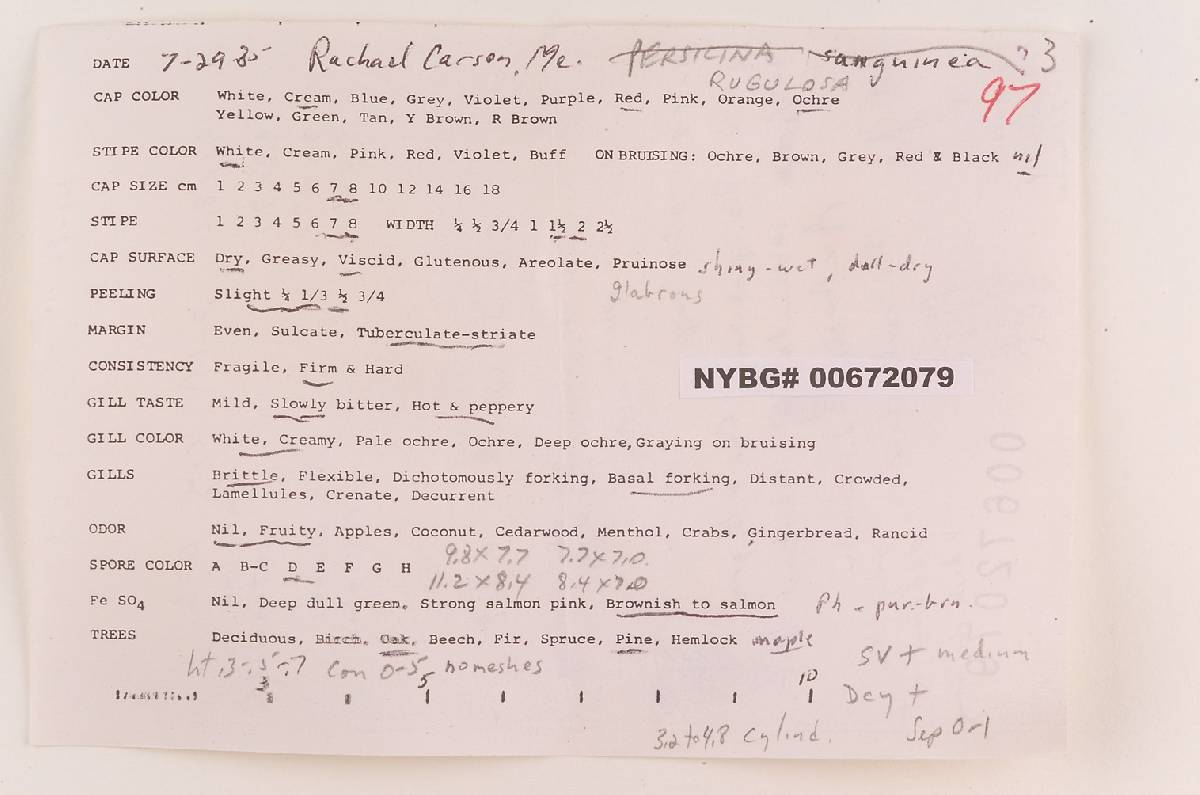 DATE 7-29-85 Rachael Carson, Me. PERSICINA sanguinea ? 3
RUGULOSA
97
CAP COLOR White, Cream, Blue, Grey, Violet, Purple, Red, Pink, Orange, Ochre
Yellow, Green, Tan, Y Brown, R Brown
STIPE COLOR White, Cream, Pink, Red, Violet, Buff ON BRUISING: Ochre, Brown, Grey, Red & Black nil
CAP SIZE cm 1 2 3 4 5 6 7 8 10 12 14 16 18
STIPE 1 2 3 4 5 6 7 8 WIDTH ¼ ½ 3/4 1 1½ 2 2½
CAP SURFACE Dry, Greasy, Viscid, Glutenous, Areolate, Pruinose shiny-wet, dull-dry
glabrous
PEELING Slight ¼ 1/3 ½ 3/4
MARGIN Even, Sulcate, Tuberculate-striate
CONSISTENCY Fragile, Firm & Hard
NYBG# 00672079
GILL TASTE Mild, Slowly bitter, Hot & peppery
GILL COLOR White, Creamy, Pale ochre, Ochre, Deep ochre, Graying on bruising
GILLS Brittle, Flexible, Dichotomously forking, Basal forking, Distant, Crowded,
Lamellules, Crenate, Decurrent
ODOR Nil, Fruity, Apples, Coconut, Cedarwood, Menthol, Crabs, Gingerbread, Rancid
9.8 x 7.7 7.7 x 7.0
SPORE COLOR A B-C D E F G H
11.2 x 8.4 8.4 x 7.0
Fe SO4 Nil, Deep dull green, Strong salmon pink, Brownish to salmon Ph - pur-brn.
TREES Deciduous, Birch, Oak, Beech, Fir, Spruce, Pine, Hemlock maple
SV + medium
ht .3-.5-.7 con 0-5 no meshes
3 5 10
Dcy +
3.2 to 4.8 cylind. Sep 0-1